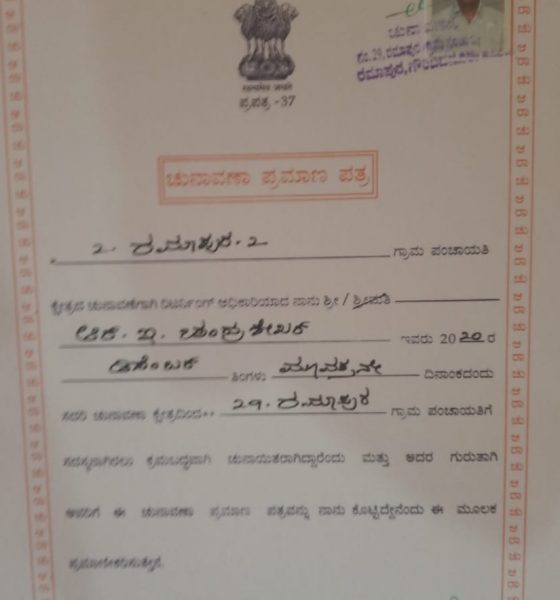 ಚುನಾವಣಾ
ನಂ.29, ರಮಾಪುರ
ರಮಾಪುರ, ಗೌರಿಬಿದನೂರು
सत्यमेव जयते
ಪ್ರಪತ್ರ -37
ಚುನಾವಣಾ ಪ್ರಮಾಣ ಪತ್ರ
2. ರಮಾಪುರ-2 ಗ್ರಾಮ ಪಂಚಾಯತಿ
ಕ್ಷೇತ್ರದ ಚುನಾವಣೆಗಾಗಿ ರಿಟರ್ನಿಂಗ್ ಅಧಿಕಾರಿಯಾದ ನಾನು ಶ್ರೀ / ಶ್ರೀಮತಿ
ಆರ್. ಇ. ಚಂದ್ರಶೇಖರ ಇವರು 2020 ರ
ಡಿಸೆಂಬರ್ ತಿಂಗಳು ಮೂವತ್ತನೇ ದಿನಾಂಕದಂದು
ಸದರಿ ಚುನಾವಣಾ ಕ್ಷೇತ್ರದಿಂದ 29. ರಮಾಪುರ ಗ್ರಾಮ ಪಂಚಾಯತಿಗೆ
ಸದಸ್ಯನಾಗಿರಲು ಕ್ರಮಬದ್ಧವಾಗಿ ಚುನಾಯಿತರಾಗಿದ್ದಾರೆಂದು ಮತ್ತು ಅದರ ಗುರುತಾಗಿ
ಅವರಿಗೆ ಈ ಚುನಾವಣಾ ಪ್ರಮಾಣ ಪತ್ರವನ್ನು ನಾನು ಕೊಟ್ಟಿದ್ದೇನೆಂದು ಈ ಮೂಲಕ
ಪ್ರಮಾಣೀಕರಿಸುತ್ತೇನೆ.